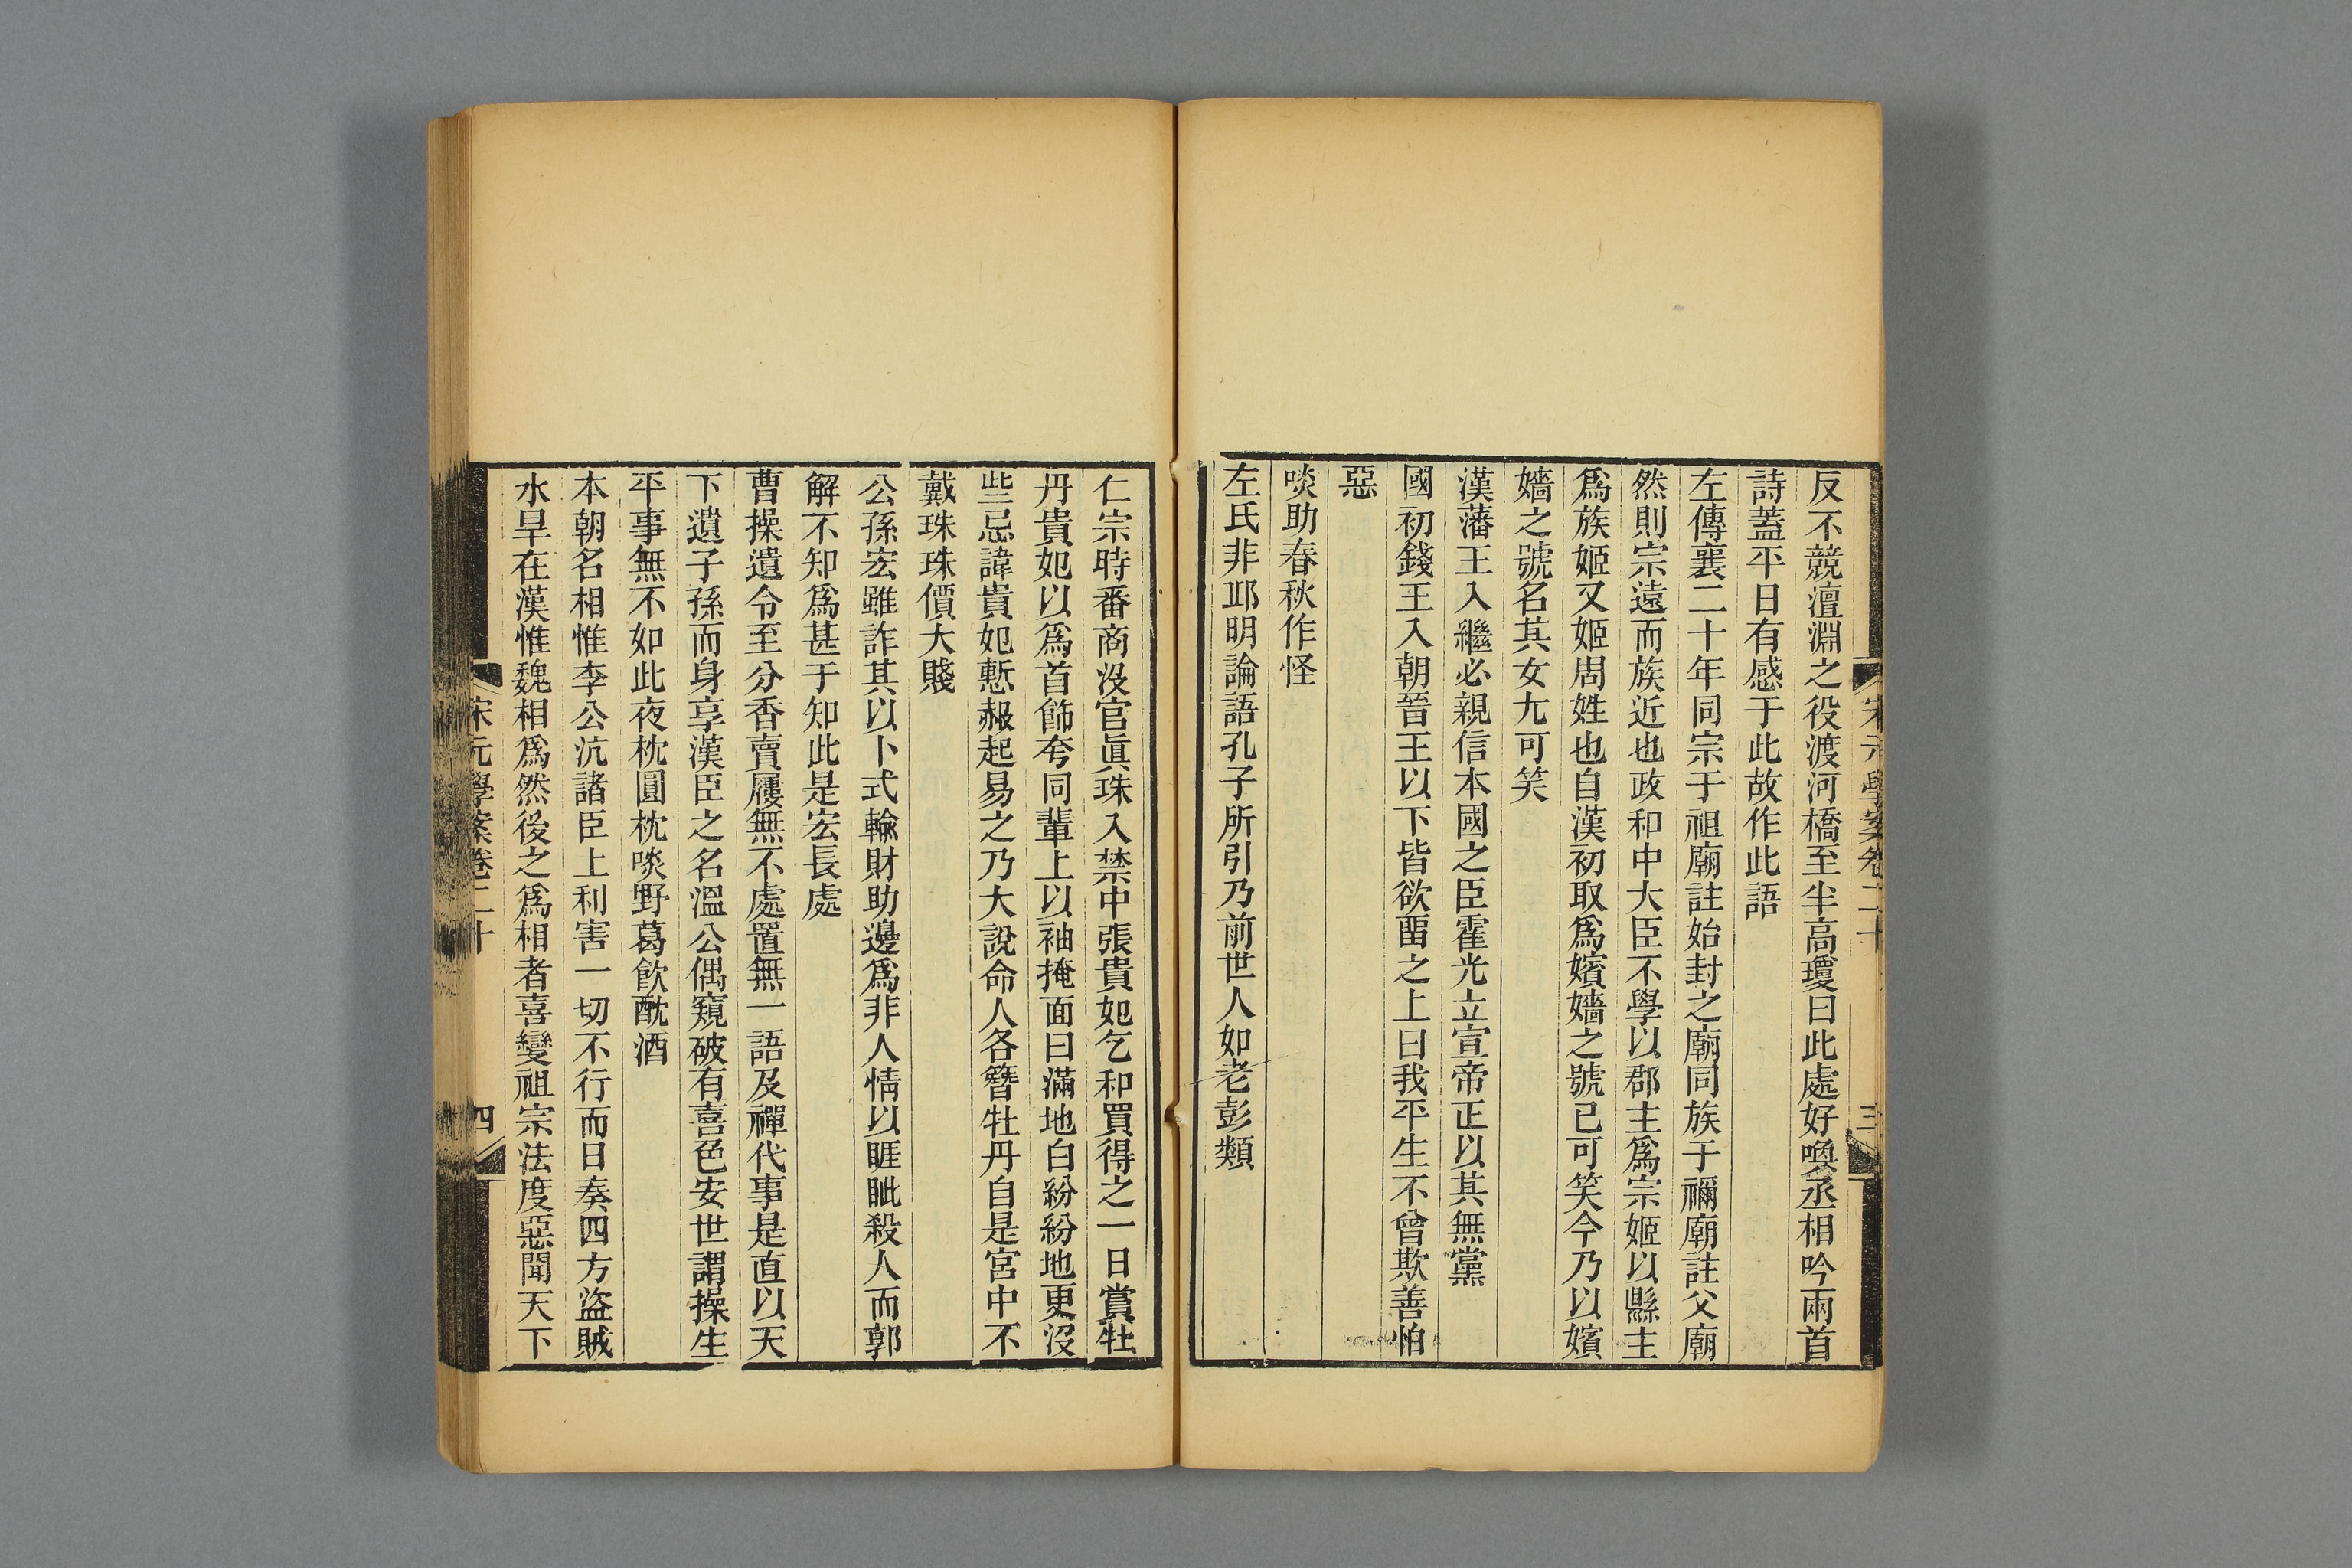 宋元學案卷二十
三
反不競澶淵之役渡河橋至半高瓊曰此處好喚丞相吟兩首
詩蓋平日有感于此故作此語
左傳襄二十年同宗于祖廟註始封之廟同族于禰廟註父廟
然則宗遠而族近也政和中大臣不學以郡主爲宗姬以縣主
爲族姬又姬周姓也自漢初取爲嬪嬙之號已可笑今乃以嬪
嬙之號名其女尢可笑
漢藩王入繼必親信本國之臣霍光立宣帝正以其無黨
國初錢王入朝晉王以下皆欲畱之上曰我平生不曾欺善怕
惡
啖助春秋作怪
左氏非邱明論語孔子所引乃前世人如老彭類
仁宗時番商沒官眞珠入禁中張貴妃乞和買得之一日賞牡
丹貴妃以爲首飾夸同輩上以袖掩面曰滿地白紛紛地更沒
些忌諱貴妃慙赧起易之乃大說命人各簪牡丹自是宮中不
戴珠珠價大賤
公孫宏雖詐其以卜式輸財助邊爲非人情以睚眦殺人而郭
解不知爲甚于知此是宏長處
曹操遺令至分香賣履無不處置無一語及禪代事是直以天
下遺子孫而身享漢臣之名溫公偶窺破有喜色安世謂操生
平事無不如此夜枕圓枕啖野葛飮酖酒
本朝名相惟李公沆諸臣上利害一切不行而日奏四方盜賊
水旱在漢惟魏相爲然後之爲相者喜變祖宗法度惡聞天下
宋元學案卷二十
四